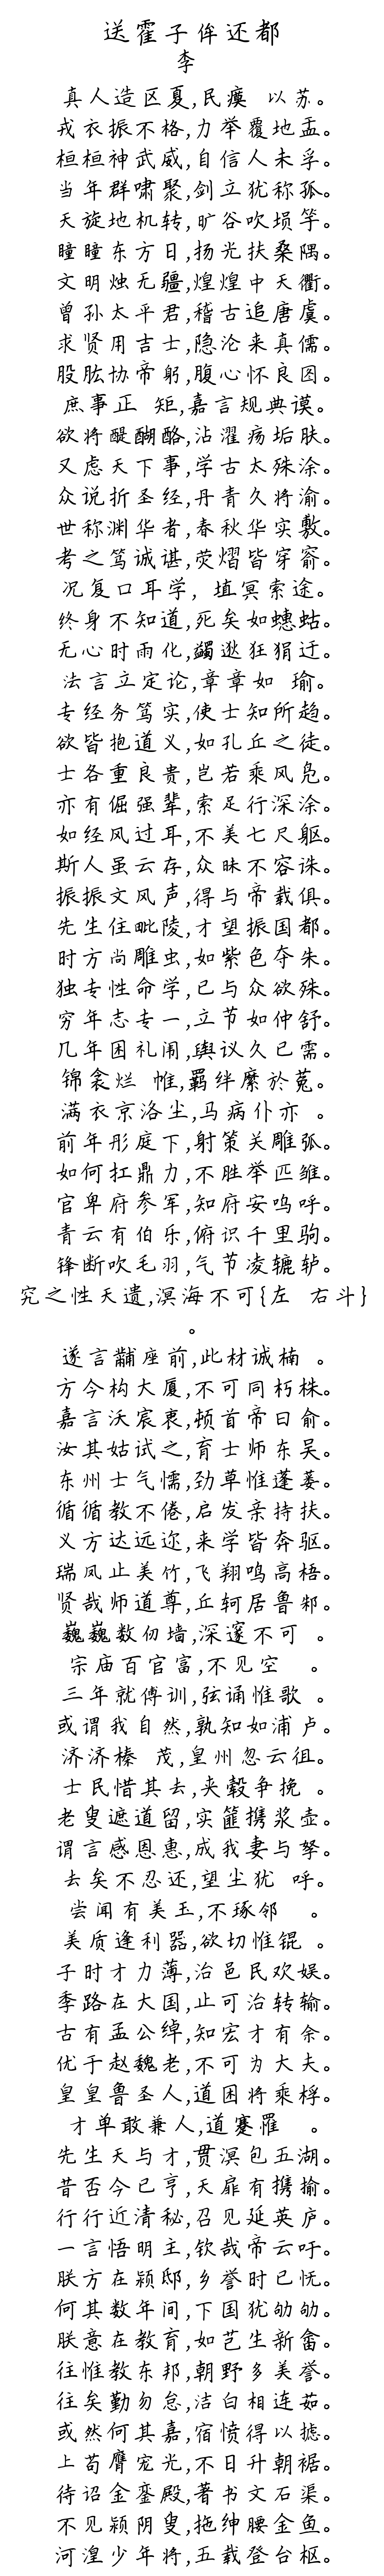 送霍子侔还都
李
真人造区夏,民瘼 以苏。
戎衣振不格,力举覆地盂。
桓桓神武威,自信人未孚。
当年群啸聚,剑立犹称孤。
天旋地机转,旷谷吹埙竽。
瞳瞳东方日,扬光扶桑隅。
文明烛无疆,煌煌中天衢。
曾孙太平君,稽古追唐虞。
求贤用吉士,隐沦来真儒。
股肱协帝躬,腹心怀良图。
庶事正 矩,嘉言规典谟。
欲将醍醐酪,沾濯疡垢肤。
又虑天下事,学古太殊涂。
众说折圣经,丹青久将渝。
世称渊华者,春秋华实敷。
考之笃诚谌,荧熠皆穿窬。
况复口耳学, 埴冥索途。
终身不知道,死矣如蟪蛄。
无心时雨化,蠲逖狂狷迂。
法言立定论,章章如 瑜。
专经务笃实,使士知所趋。
欲皆抱道义,如孔丘之徒。
士各重良贵,岂若乘风凫。
亦有倔强辈,索足行深涂。
如经风过耳,不美七尺躯。
斯人虽云存,众昧不容诛。
振振文风声,得与帝载俱。
先生住毗陵,才望振国都。
时方尚雕虫,如紫色夺朱。
独专性命学,已与众欲殊。
穷年志专一,立节如仲舒。
几年困礼闱,舆议久已需。
锦衾烂 帷,羁绊縻於菟。
满衣京洛尘,马病仆亦 。
前年彤庭下,射策关雕弧。
如何扛鼎力,不胜举匹雏。
官卑府参军,知府安呜呼。
青云有伯乐,俯识千里驹。
锋断吹毛羽,气节凌辘轳。
究之性天遗,溟海不可{左 右斗}
。
遂言黼座前,此材诚楠 。
方今构大厦,不可同朽株。
嘉言沃宸衷,顿首帝曰俞。
汝其姑试之,育士师东吴。
东州士气懦,劲草惟蓬蒌。
循循教不倦,启发亲持扶。
义方达远迩,来学皆奔驱。
瑞凤止美竹,飞翔鸣高梧。
贤哉师道尊,丘轲居鲁邾。
巍巍数仞墙,深邃不可 。
宗庙百官富,不见空 。
三年就傅训,弦诵惟歌 。
或谓我自然,孰知如浦卢。
济济榛 茂,皇州忽云徂。
士民惜其去,夹毂争挽 。
老叟遮道留,实篚携浆壶。
谓言感恩惠,成我妻与孥。
去矣不忍还,望尘犹 呼。
尝闻有美玉,不琢邻 。
美质逢利器,欲切惟锟 。
子时才力薄,治邑民欢娱。
季路在大国,止可治转输。
古有孟公绰,知宏才有余。
优于赵魏老,不可为大夫。
皇皇鲁圣人,道困将乘桴。
才单敢兼人,道蹇罹 。
先生天与才,贯溟包五湖。
昔否今已亨,天扉有携揄。
行行近清秘,召见延英庐。
一言悟明主,钦哉帝云吁。
朕方在颍邸,乡誉时已怃。
何其数年间,下国犹劬劬。
朕意在教育,如艺生新畲。
往惟教东邦,朝野多美誉。
往矣勤勿怠,洁白相连茹。
或然何其嘉,宿愤得以摅。
上苟膺宠光,不日升朝裾。
待诏金銮殿,著书文石渠。
不见颍阴叟,拖绅腰金鱼。
河湟少年将,五载登台枢。